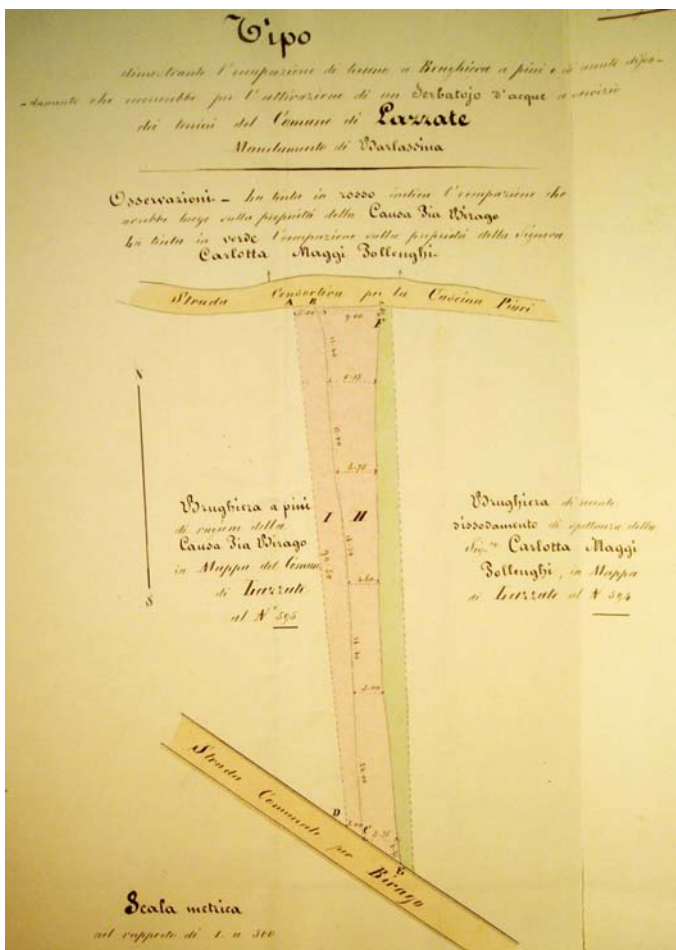 Tipo
dimostrante l'occupazione di terreno a Brughiera a pini e in
che per l'attivazione di un Serbatojo d'acque a servizio
dei terrieri del Comune di Lazzate
Mandamento di Barlassina
Osservazioni - La tinta in rosso indica l'occupazione che
avrebbe luogo sulla proprietà della Causa Pia Birago
La tinta in verde l'occupazione sulla proprietà della signora
Carlotta Maggi Zollenghi.
Strada Consortiva per la Cascina Piuri
A B
F
N
S
I II
Brughiera a pini
di ragione della
Causa Pia Birago
in Mappa del Comune
di Lazzate
al N° 595
Brughiera di
dissodamento di spettanza della
Sig.ra Carlotta Maggi
Zollenghi, in Mappa
di Lazzate al N 594
D
C
E
Strada Comunale per Birago
Scala metrica
nel rapporto di 1 a 500